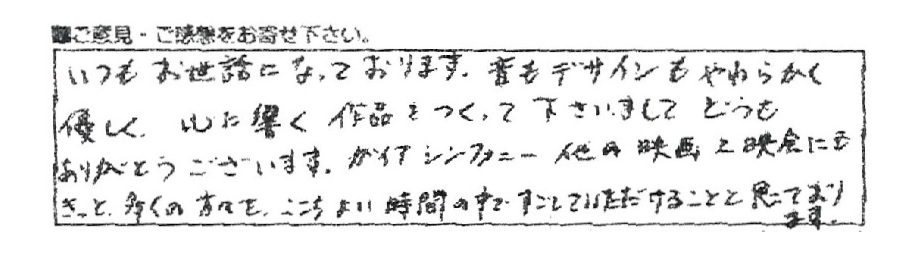 ご意見・ご感想をお寄せ下さい。
いつもお世話になっております。音もデザインもやわらかく
優しく、心に響く作品をつくって下さいましてどうも
ありがとうございます。ガイアシンフォニー他の映画上映会にも
きっと、多くの方々を、ここちよい時間の中ですごしていただけることと思っており
ます。